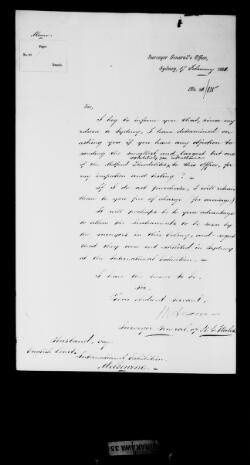 Memo.
Surveyor General's Office,
Sydney, 17 February 1881.
No. 81/
Sir,
I beg to inform you that, since my
return to Sydney, I have determined on
asking you if you have any objection to
sending the smallest and largest but one
of the Theodolites, to this Office, for
my inspection and testing? –
If I do not purchase, I will return
them to you free of charge for carriage.
It will perhaps be to your advantage
to allow the instruments to be seen by
the surveyors in this Colony, and
that they were not exhibited in Sydney
at the International Exhibition. –
I have the honor to be,
Sir,
Your obedient servant,
Surveyor General of N. S. Wales
Husband, Esq
International Exhibition
Melbourne